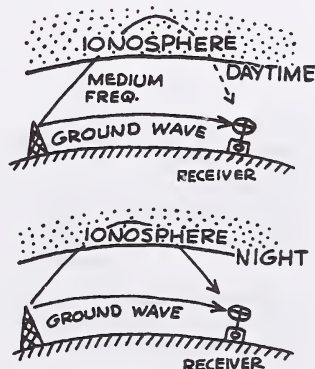 IONOSPHERE
DAYTIME
MEDIUM
FREQ.
GROUND WAVE
RECEIVER
IONOSPHERE
NIGHT
GROUND WAVE
RECEIVER